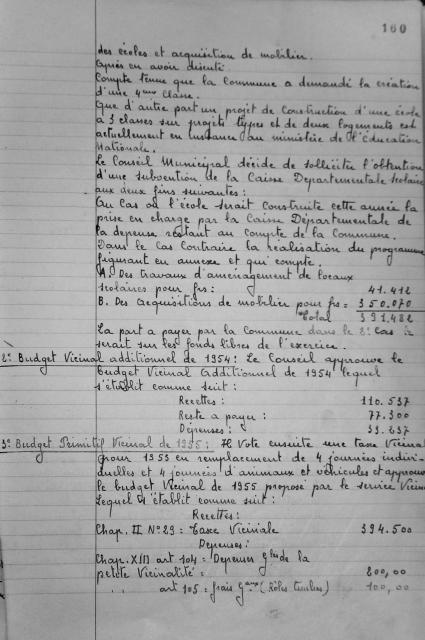 160
des écoles et acquisition de mobilier.
Après en avoir discuté
Compte tenu que la Commune a demandé la création
d'une 4ème classe.
Que d'autre part un projet de Construction d'une école
à 3 classes sur projets types et de deux logements est
actuellement en instance au ministère de l'Education
Nationale.
Le Conseil Municipal décide de solliciter l'obtention
d'une subvention de la Caisse Départementale scolaire
aux deux fins suivantes :
Au Cas où l'école serait construite cette année la
prise en charge par la Caisse Départementale de
la dépense restant au compte de la Commune.
Dans le cas contraire la réalisation du programme
figurant en annexe et qui compte.
A. Des travaux d'aménagement de locaux
scolaires pour frs : 41.412
B. Des acquisitions de mobilier pour frs = 350.070
Total 391.482
La part à payer par la Commune dans le 2° Cas
serait sur les fonds libres de l'exercice.
2° Budget Vicinal additionnel de 1954 : Le Conseil approuve le
budget Vicinal additionnel de 1954 lequel
s'établit comme suit :
Recettes : 110.537
Reste à payer : 77.300
Dépenses : 33.237
3° Budget Primitif Vicinal de 1955 : Il Vote ensuite une taxe Vicinale
pour 1955 en remplacement de 4 journées indivi-
duelles et 4 journées d'animaux et véhicules et approuve
le budget Vicinal de 1955 proposé par le service Vicinal
lequel s'établit comme suit :
Recettes :
Chap. II N° 29 : Taxe Vicinale 394.500
Dépenses :
Chap. XIII art 104 : Dépenses Gales de la
petite Vicinalité = 200,00
" art 105 : frais Gaux (Rôles timbres) 100,00